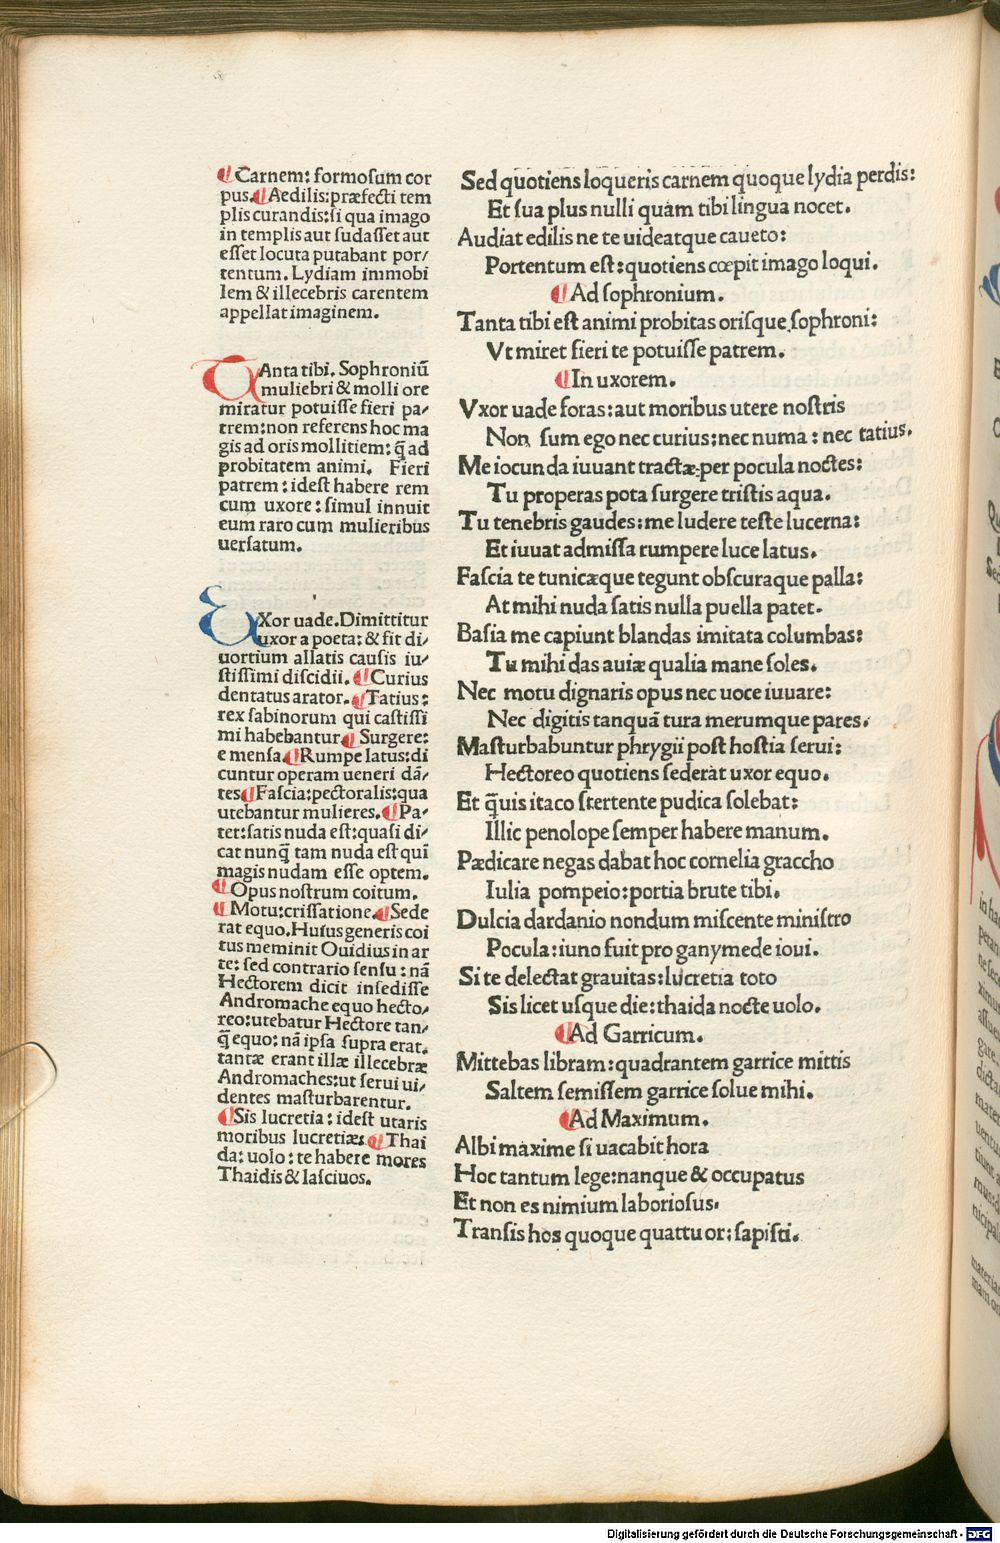 ¶ Carnem: formoſum cor
pus. ¶ Aedilis: præfecti tem
plis curandis: ſi qua imago
in templis aut ſudaſſet aut
eſſet locuta putabant por/
tentum. Lydiam immobi
lem & illecebris carentem
appellat imaginem.
TAnta tibi. Sophroniū
muliebri & molli ore
miratur potuiſſe fieri pa/
trem: non referens hoc ma
gis ad oris mollitiem: q̄ ad
probitatem animi. Fieri
patrem: ideſt habere rem
cum uxore: ſimul innuit
eum raro cum mulieribus
uerſatum.
VXor uade. Dimittitur
uxor a poeta: & fit di/
uortium allatis cauſis iu/
ſtiſſimi diſcidii. ¶ Curius
dentatus arator. ¶ Tatius:
rex ſabinorum qui caſtiſſi
mi habebantur ¶ Surgere:
e menſa. ¶ Rumpe latus: di
cuntur operam ueneri dā/
tes ¶ Faſcia: pectoralis: qua
utebantur mulieres. ¶ Pa/
tet: ſatis nuda eſt: quaſi di/
cat nunq̄ tam nuda eſt quī
magis nudam eſſe optem.
¶ Opus noſtrum coitum.
¶ Motu: criſſatione. ¶ Sede
rat equo. Huius generis coi
tus meminit Ouidius in ar
te: ſed contrario ſenſu: nā
Hectorem dicit inſediſſe
Andromache equo hecto/
reo: utebatur Hectore tan/
q̄ equo: nā ipſa ſupra erat.
tantæ erant illæ illecebræ
Andromaches: ut ſerui ui/
dentes maſturbarentur.
¶ Sis lucretia: ideſt utaris
moribus lucretiæ: ¶ Thai
da: uolo: te habere mores
Thaidis & laſciuos.
Sed quotiens loqueris carnem quoque lydia perdis:
Et ſua plus nulli quam tibi lingua nocet.
Audiat edilis ne te uideatque caueto:
Portentum eſt: quotiens cœpit imago loqui.
¶ Ad ſophronium.
Tanta tibi eſt animi probitas oriſque ſophroni:
Vt miret fieri te potuiſſe patrem.
¶ In uxorem.
Vxor uade foras: aut moribus utere noſtris
Non ſum ego nec curius: nec numa: nec tatius.
Me iocunda iuuant tractæ per pocula noctes:
Tu properas pota ſurgere triſtis aqua.
Tu tenebris gaudes: me ludere teſte lucerna:
Et iuuat admiſſa rumpere luce latus.
Faſcia te tunicæque tegunt obſcuraque palla:
At mihi nuda ſatis nulla puella patet.
Baſia me capiunt blandas imitata columbas:
Tu mihi das auiæ qualia mane ſoles.
Nec motu dignaris opus nec uoce iuuare:
Nec digitis tanquā tura merumque pares.
Maſturbabuntur phrygii poſt hoſtia ſerui:
Hectoreo quotiens ſederat uxor equo.
Et q̄uis itaco ſtertente pudica ſolebat:
Illic penolope ſemper habere manum.
Pædicare negas dabat hoc cornelia graccho
Iulia pompeio: portia brute tibi.
Dulcia dardanio nondum miſcente miniſtro
Pocula: iuno fuit pro ganymede ioui.
Si te delectat grauitas: lucretia toto
Sis licet uſque die: thaida nocte uolo.
¶ Ad Garricum.
Mittebas libram: quadrantem garrice mittis
Saltem ſemiſſem garrice ſolue mihi.
¶ Ad Maximum.
Albi maxime ſi uacabit hora
Hoc tantum lege: nanque & occupatus
Et non es nimium laborioſus.
Tranſis hos quoque quattuor: ſapiſti.
Digitalisierung gefördert durch die Deutsche Forschungsgemeinschaft - DFG